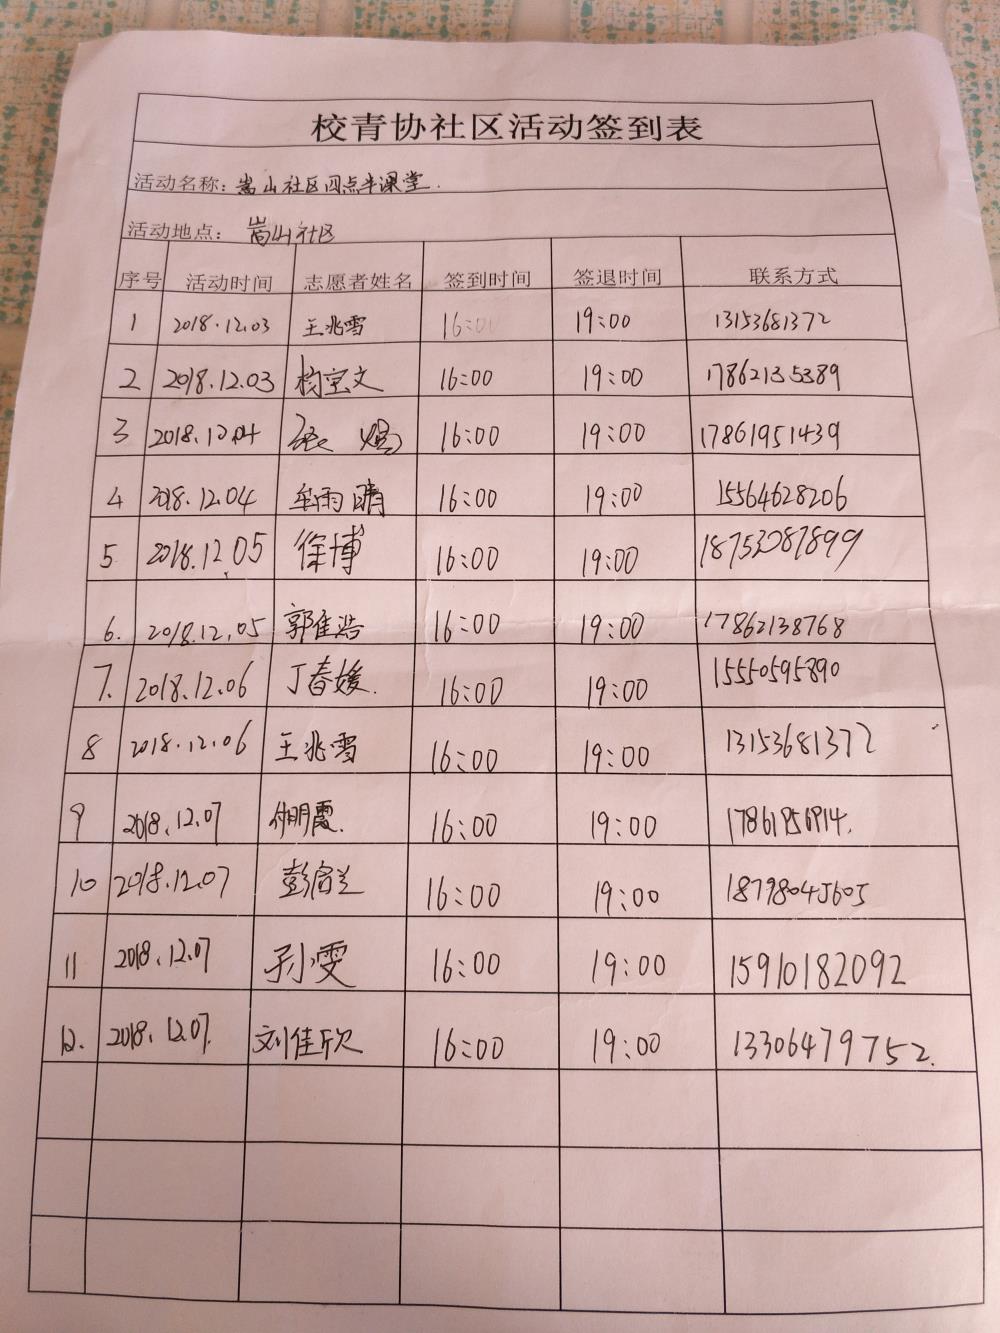 校青协社区活动签到表
活动名称：嵩山社区四点半课堂.
活动地点：嵩山社区
序号 活动时间 志愿者姓名 签到时间 签退时间 联系方式
1 2018.12.03 王兆雪 16:00 19:00 13153681372
2 2018.12.03 杨宝文 16:00 19:00 17862135389
3 2018.12.04 张 16:00 19:00 17861951439
4 2018.12.04 牟雨晴 16:00 19:00 15564628206
5 2018.12.05 徐博 16:00 19:00 18753087899
6. 2018.12.05 郭佳浩 16:00 19:00 17862138768
7. 2018.12.06 丁春媛. 16:00 19:00 15550595890
8 2018.12.06 王兆雪 16:00 19:00 13153681372
9 2018.12.07 付明霞. 16:00 19:00
10 2018.12.07 彭 16:00 19:00 18798045605
11 2018.12.07 孙雯 16:00 19:00 15910182092
12. 2018.12.07. 刘佳欣 16:00 19:00 13306479752.